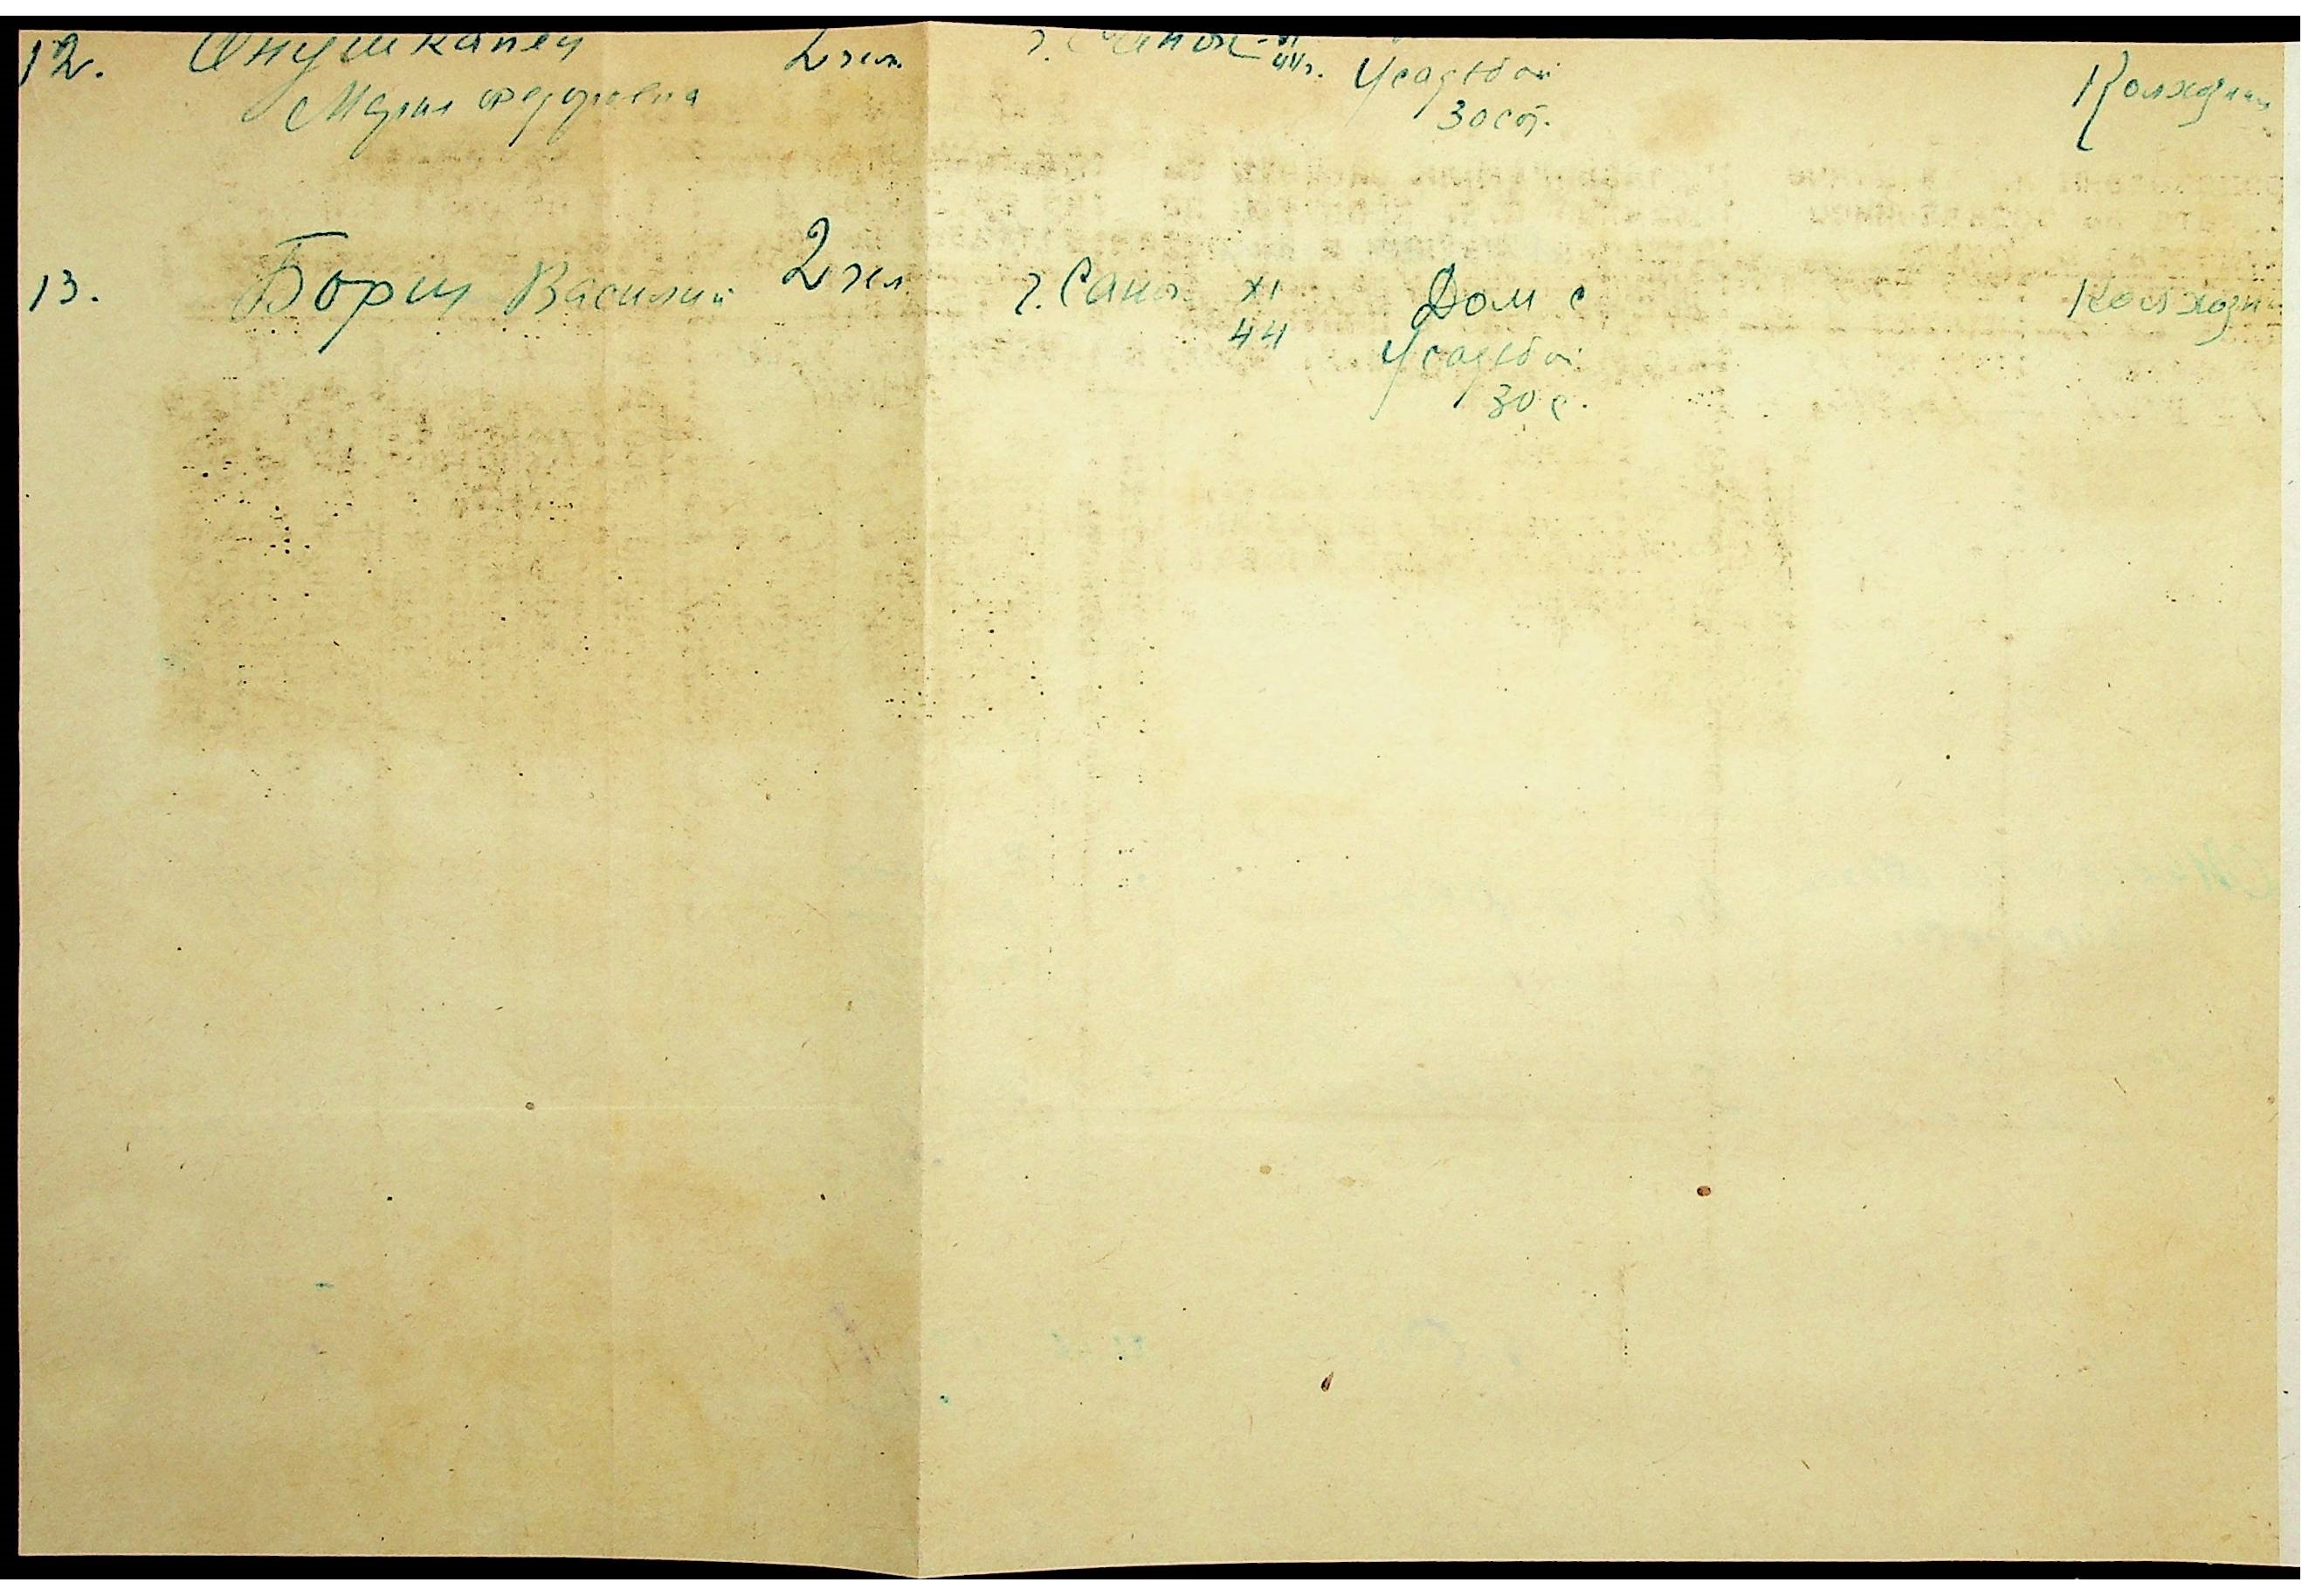 12. Онушканец 2 чел. г. Санок XI
44г. Усадьбой
Мария Федоровна 30 сот. Колхозник
13. Борщ Василий 2 чел. г. Санок XI Дом с Колхозн
44 Усадьбой
30 с.